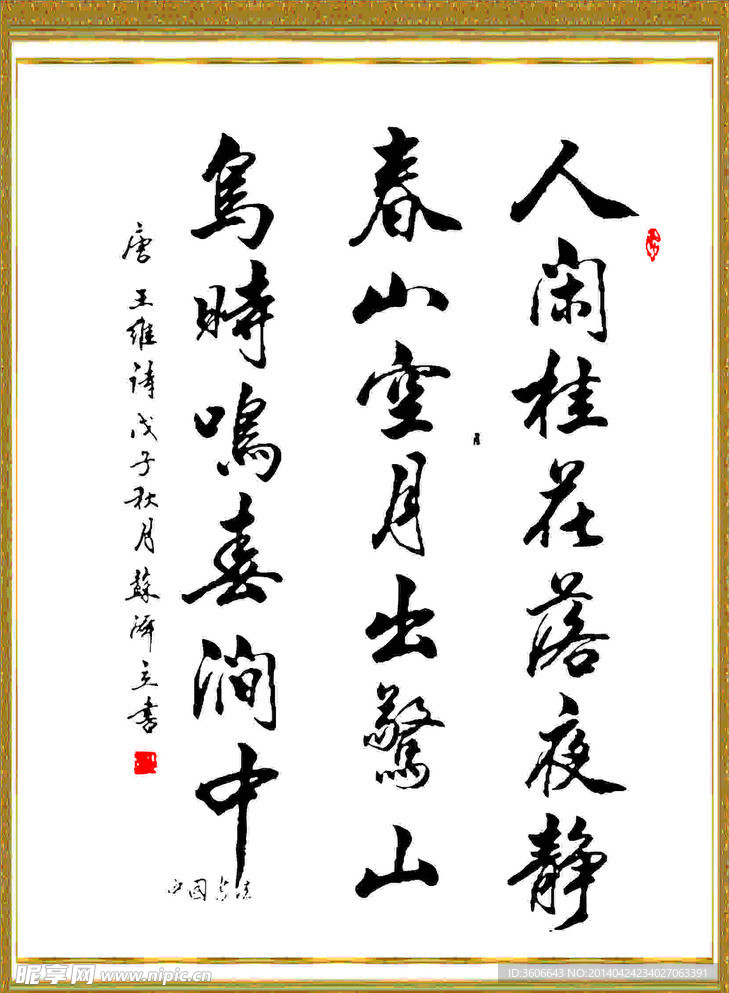 人閑桂花落夜静
春山空月出驚山
鳥時鳴春澗中
唐 王維詩 戊子秋月 蘇澤立書
中国书法
昵享网 www.nipic.cn
ID:3606643 NO:20140424234027063391